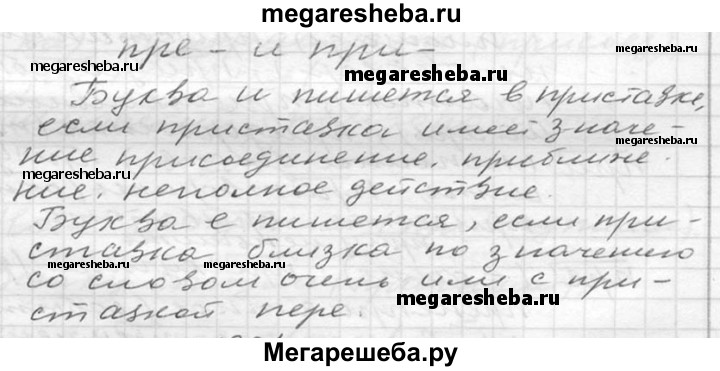 megaresheba.ru
пре- и при-
megaresheba.ru
megaresheba.ru
megaresheba.ru
Буква и пишется в приставке,
если приставка имеет значе-
ние присоединение, приближе-
megaresheba.ru
megaresheba.ru
ние, неполное действие.
Буква е пишется, если при-
ставка близка по значению
megaresheba.ru
megaresheba.ru
со словом очень или с при-
megaresheba.ru
ставкой пере.
Мегарешеба.ру